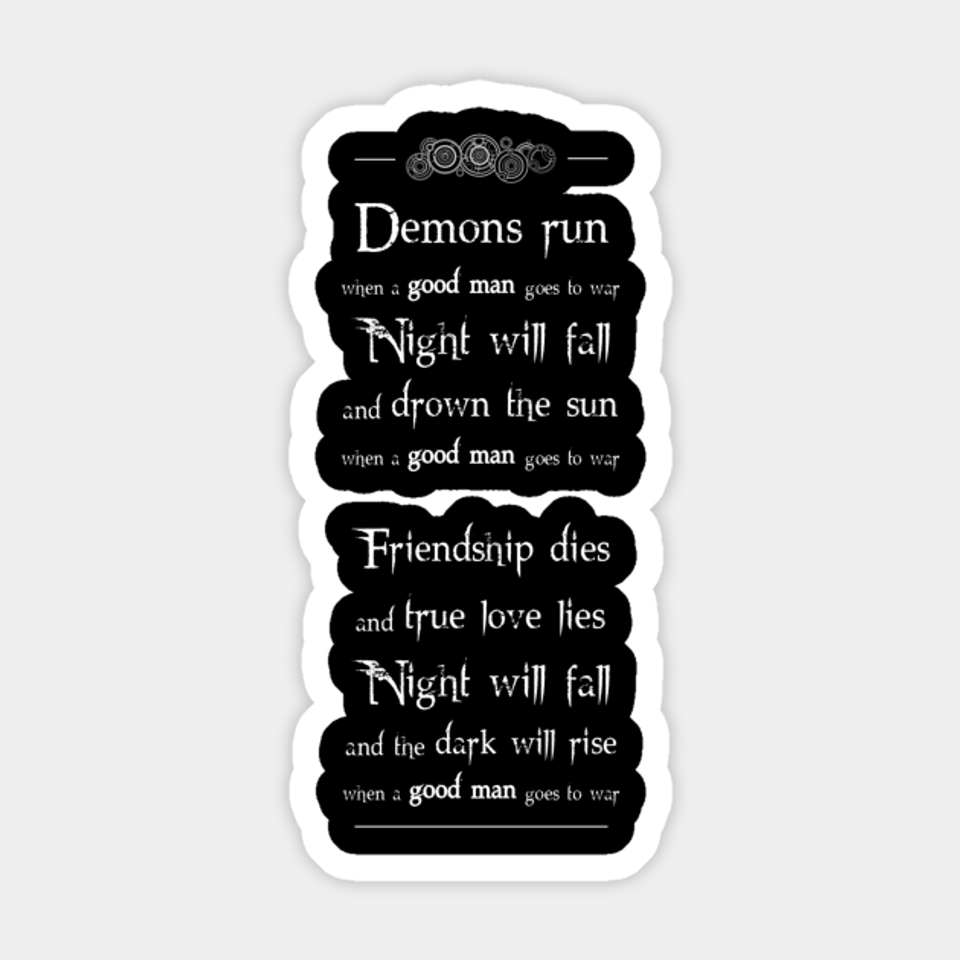 Demons run
when a good man goes to war
Night will fall
and drown the sun
when a good man goes to war
Friendship dies
and true love lies
Night will fall
and the dark will rise
when a good man goes to war